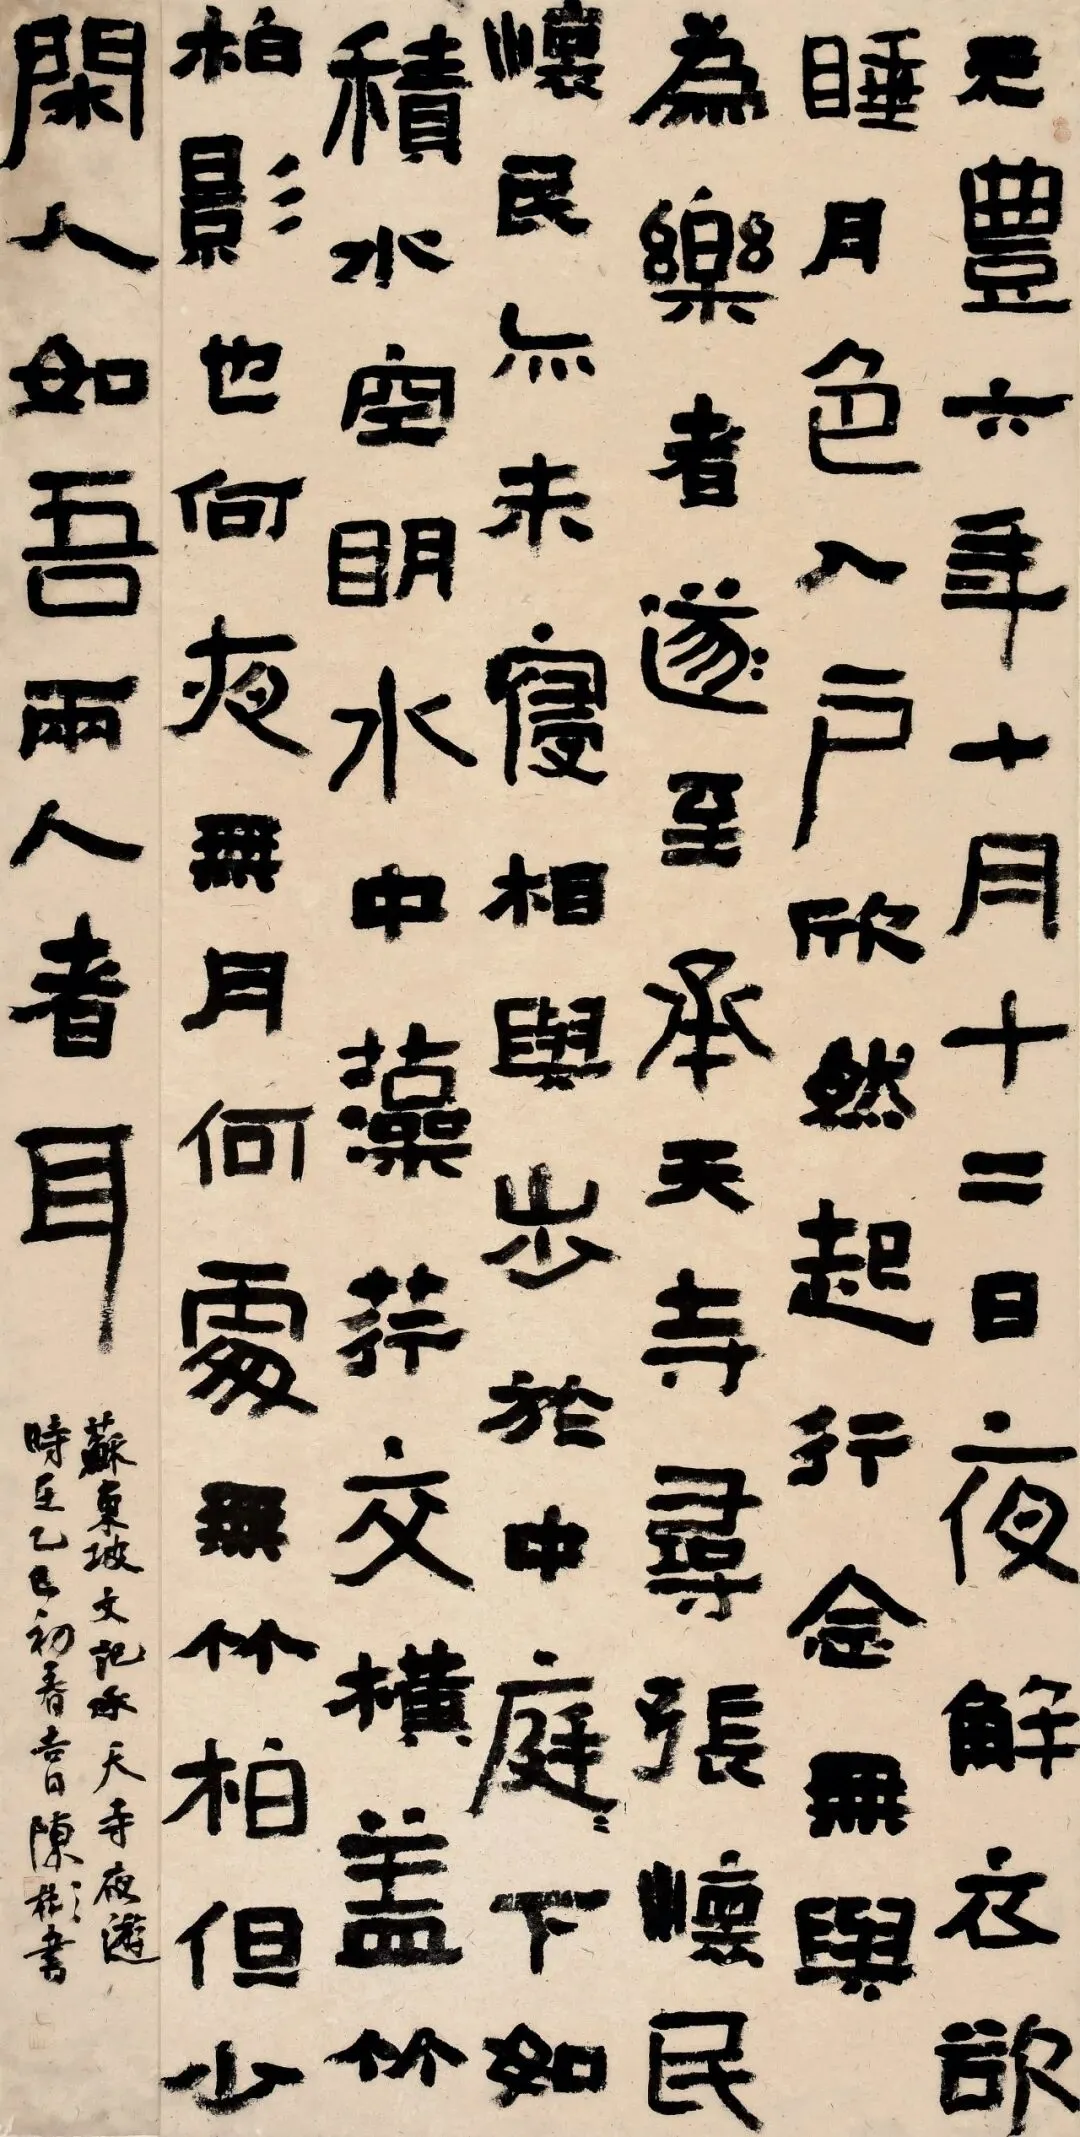 元豐六年十月十二日夜解衣欲
睡月色入戶欣然起行念無與
為樂者遂至承天寺尋張懷民
懷民亦未寢相與步於中庭〻下如
積水空明水中藻荇交橫蓋竹
柏影也何夜無月何處無竹柏但少
閑人如吾兩人者耳
蘇東坡文記承天寺夜遊
時在乙巳初春吉日陳彬書